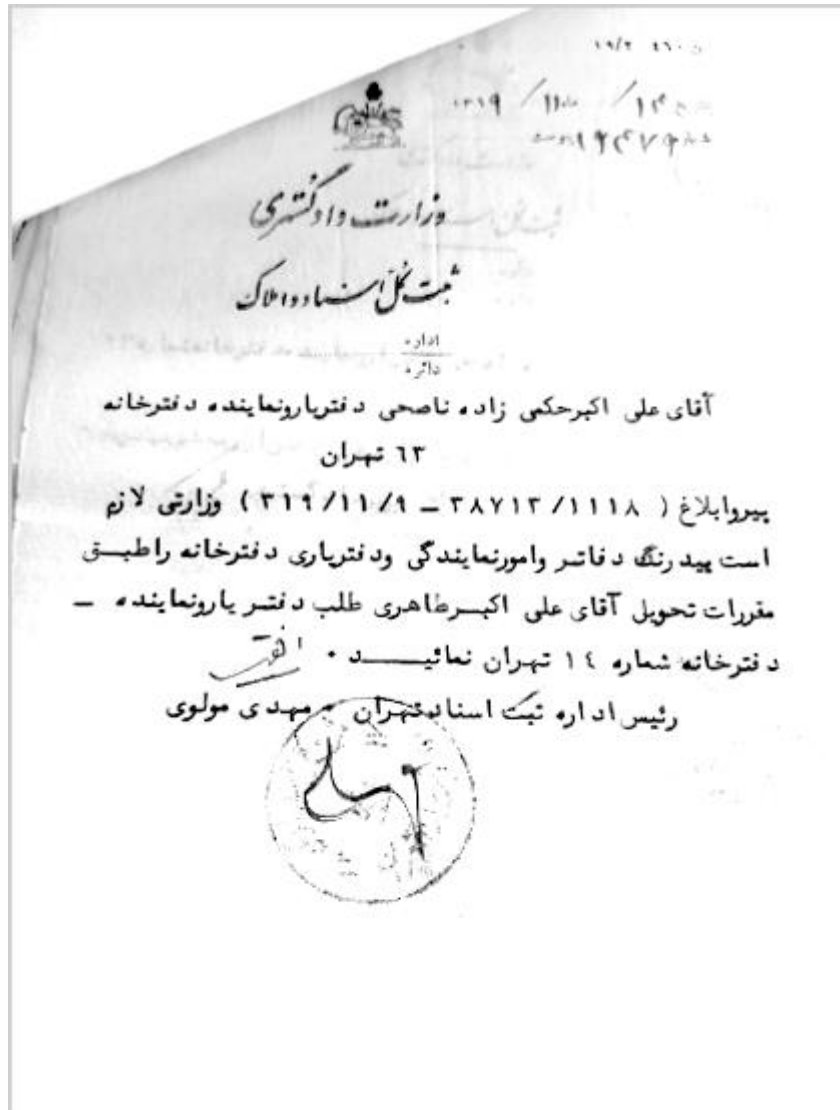 ۱۳۱۹ / ۱۱ / ۱۴
وزارت دادگستری
ثبت کل اسناد و املاک
اداره
دائره
آقای علی اکبرحکمی زاده ناصحی دفتریارونماینده دفترخانه
٦٣ تهران
پیروابلاغ ( ۳۱۹/۱۱/۹ – ۳۸۷۱۳/۱۱۱۸ ) وزارتی لازم
است بیدرنگ دفاتر وامورنمایندگی ودفتریاری دفترخانه راطبق
مقررات تحویل آقای علی اکبرطاهری طلب دفتریارونماینده –
دفترخانه شماره ١٤ تهران نمائید .
رئیس اداره ثبت اسناد تهران - مهدی مولوی